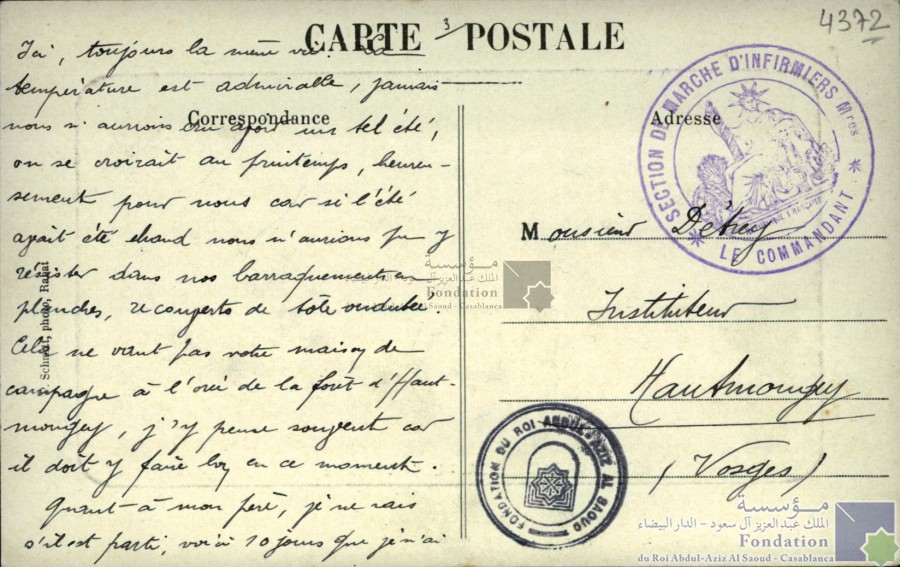 4372
3
CARTE POSTALE
Correspondance
Adresse
Ici, toujours la même vie. La
température est admirable, jamais
nous n'aurions cru avoir un tel été,
on se croirait au printemps, heureu-
sement pour nous car si l'été
avait été chaud nous n'aurions pu y
résister dans nos barraquements en
planches, recouverts de tôle ondulée.
Cela ne vaut pas votre maison de
campagne à l'orée de la forêt d'Haut-
mougey, j'y pense souvent car
il doit y faire bon en ce moment.
Quant-à mon père, je ne sais
s'il est parti, voilà 10 jours que je n'ai
Schmitt, photo, Rabat
SECTION DE MARCHE D'INFIRMIERS Mres
LE COMMANDANT
Monsieur Détrey
Instituteur
Hautmougey
(Vosges)
مؤسسة
الملك عبد العزيز آل سعود
Fondation
du Roi Abdul-Aziz Al Saoud - Casablanca
FONDATION DU ROI ABDUL-AZIZ AL SAOUD
مؤسسة
الملك عبد العزيز آل سعود - الدار البيضاء
Fondation
du Roi Abdul-Aziz Al Saoud - Casablanca